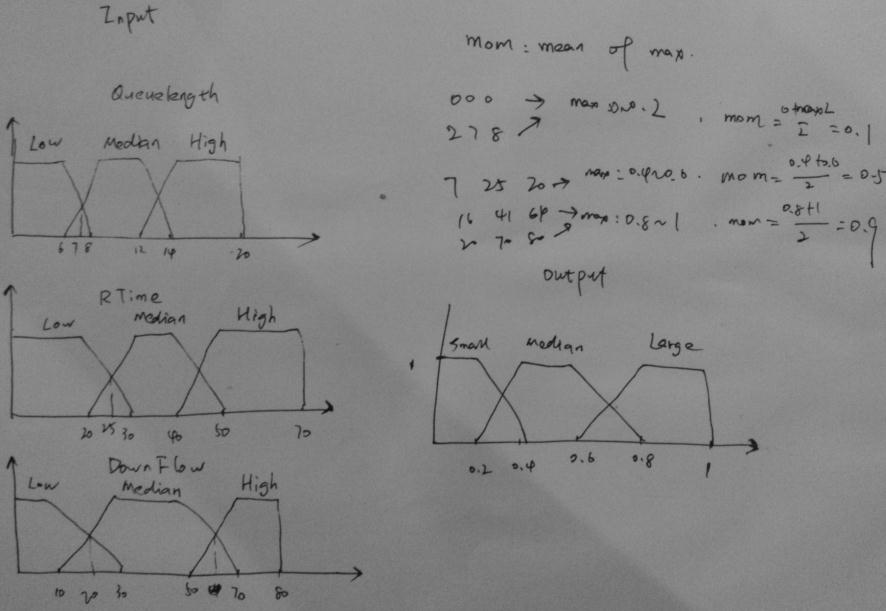 Input
Queuelength
Low Median High
6 7 8 12 14 20
RTime
Low Median High
20 25 30 40 50 70
DownFlow
Low Median High
10 20 30 50 70 80
mom : mean of max.
0 0 0 → max : 0~0.2 . mom = = 0.1
2 7 8
7 25 20 → max : 0.4~0.6 . mom = 0.4 to 0.6 / 2 = 0.5
16 41 64 → max : 0.8~1 . mom = 0.8+1 / 2 = 0.9
20 70 80
Output
1 Small median Large
0.2 0.4 0.6 0.8 1